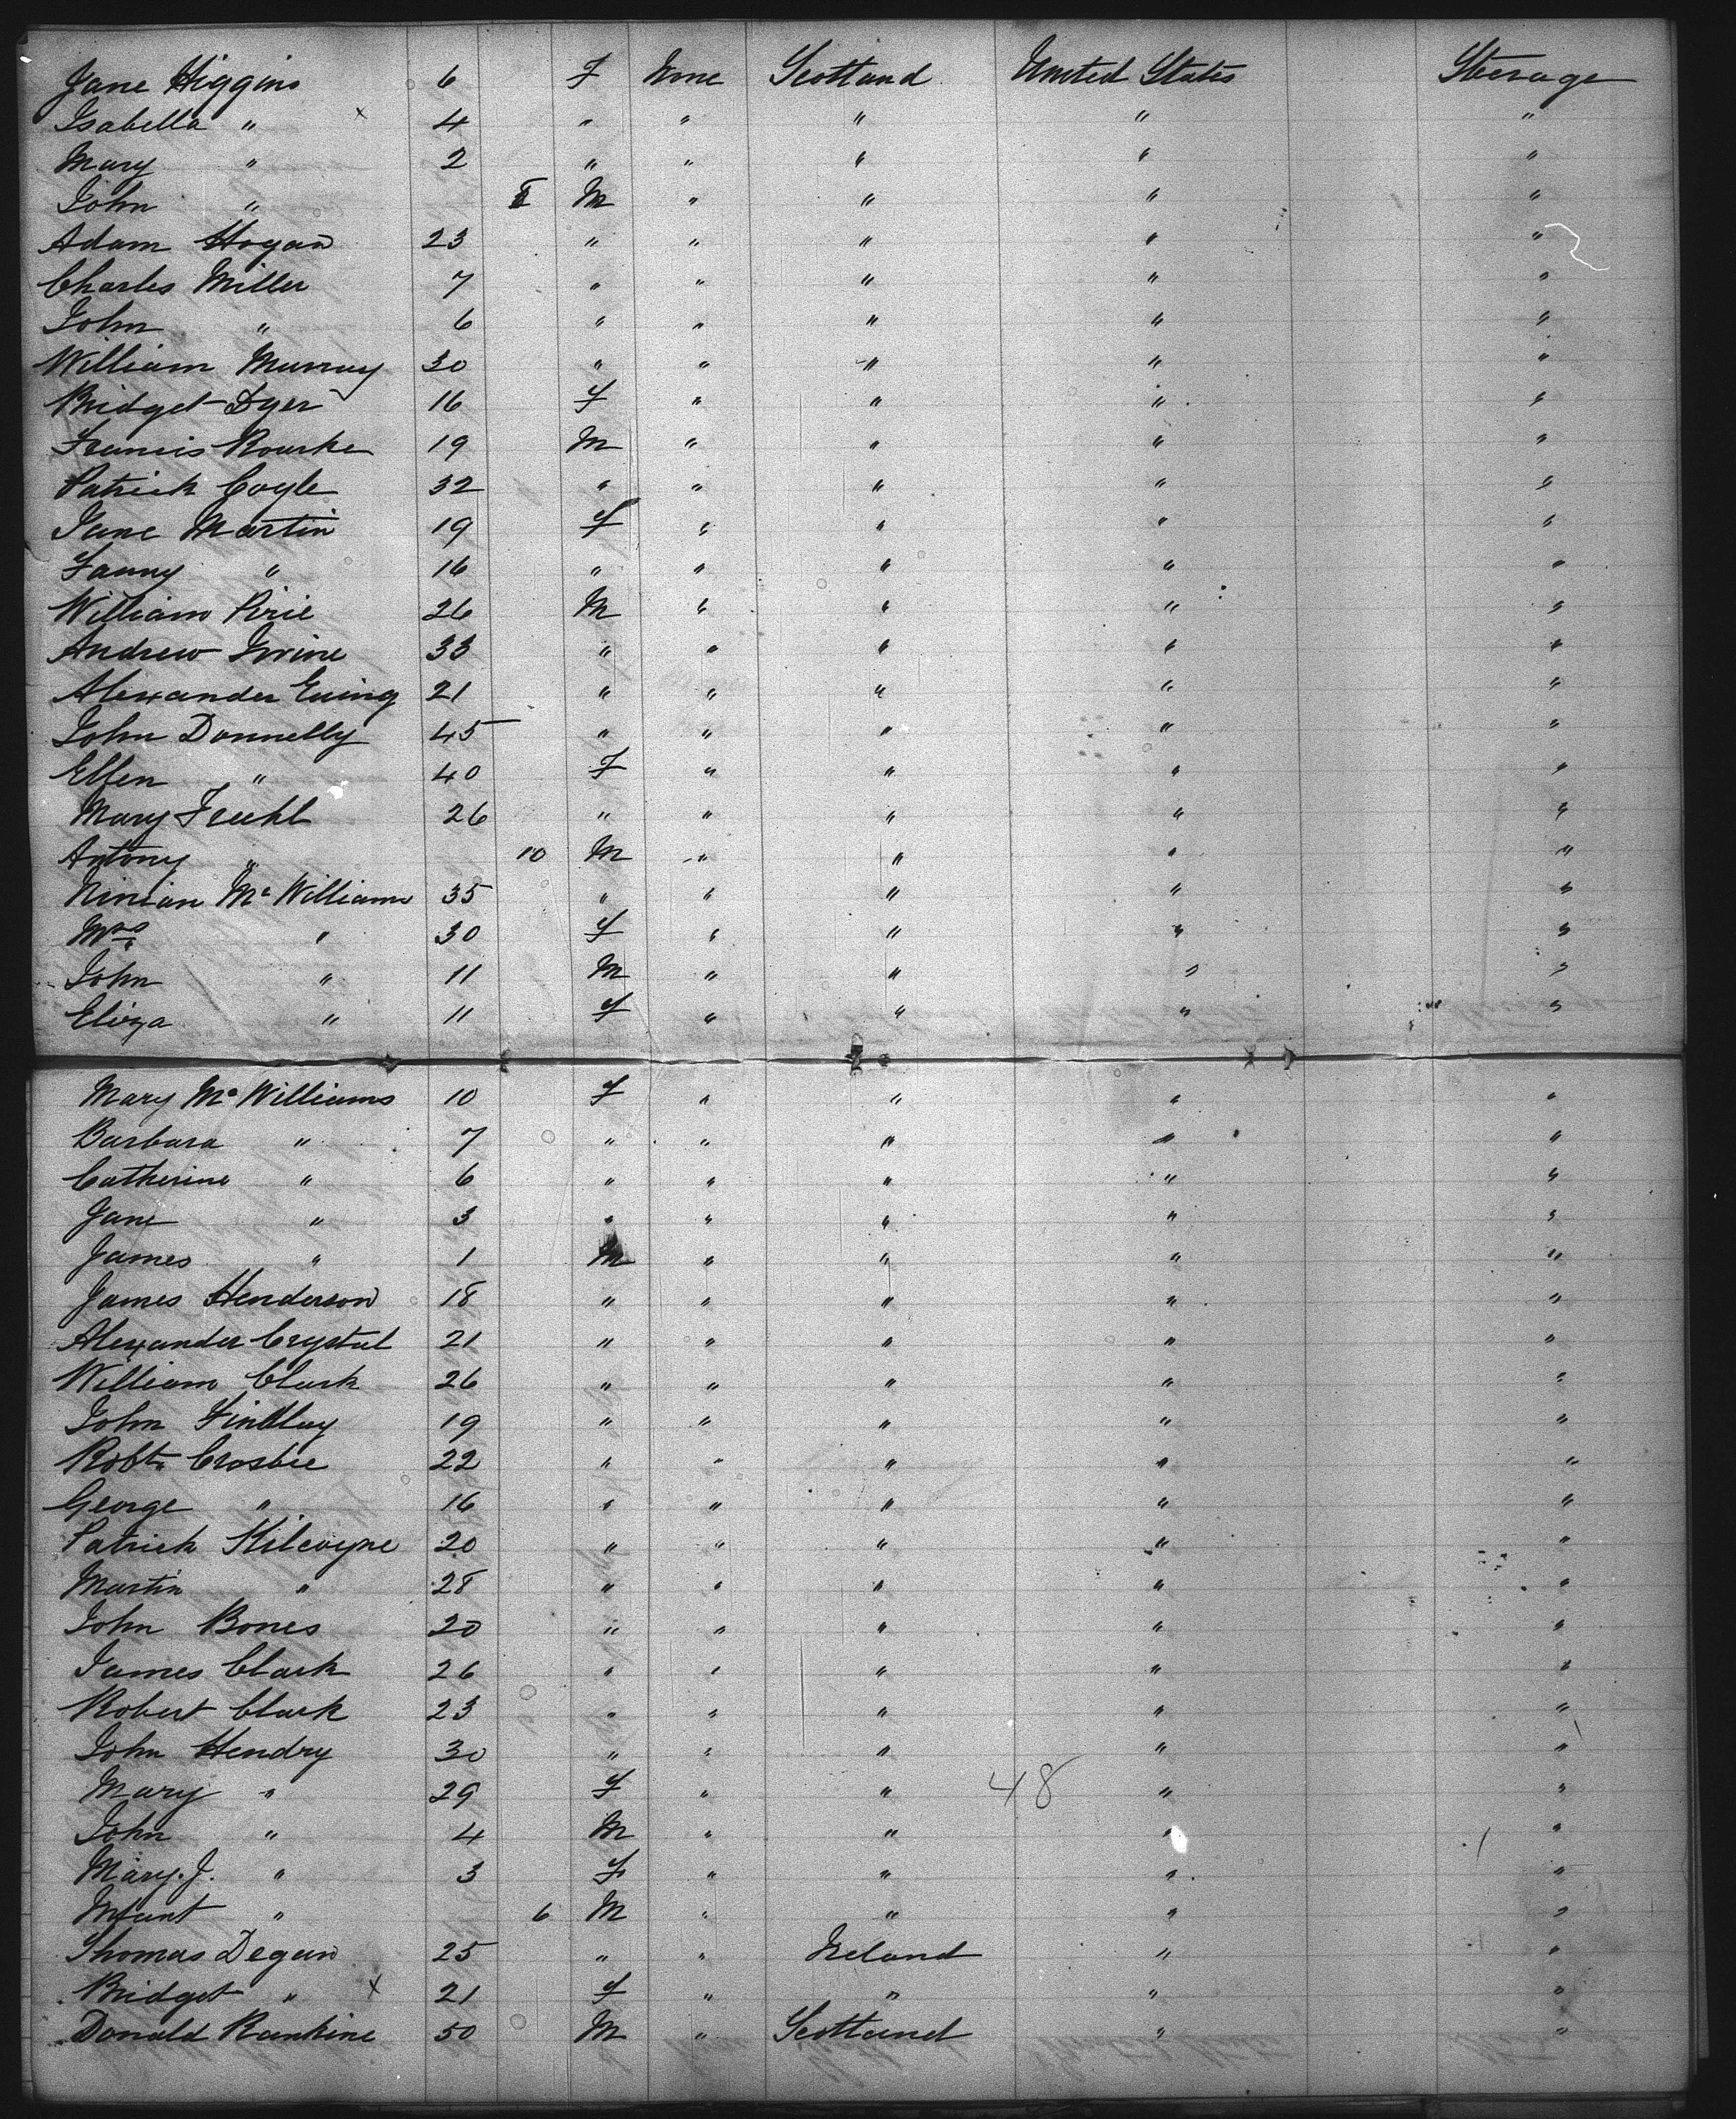 Jane Higgins 6 F None Scotland United States Steerage
Isabella " 4 " " " " "
Mary " 2 " " " " "
John " M " " " "
Adam Hogan 23 " " " " "
Charles Miller 7 " " " " "
John " 6 " " " " "
William Murray 30 " " " " "
Bridget Dyer 16 F " " " "
Francis Rourke 19 M " " " "
Patrick Coyle 32 " " " " "
Jane Martin 19 F " " " "
Fanny " 16 " " " " "
William Pirie 26 M " " " "
Andrew Irvine 33 " " " " "
Alexander Ewing 21 " " " " "
John Donnelly 45 " " " " "
Ellen " 40 F " " " "
Mary 26 " " " " "
Antony " 10 M " " " "
Ninian McWilliams 35 " " " " "
Mrs " 30 F " " " "
John " 11 M " " " "
Eliza " 11 F " " " "
Mary McWilliams 10 F " " " "
Barbara " 7 " " " " "
Catherine " 6 " " " " "
Jane " 3 " " " " "
James " 1 M " " " "
James Henderson 18 " " " " "
Alexander Crystal 21 " " " " "
William Clark 26 " " " " "
John Findlay 19 " " " " "
Robt. Crosbie 22 " " " " "
George " 16 " " " " "
Patrick Kilcoyne 20 " " " " "
Martin " 28 " " " " "
John Bones 20 " " " " "
James Clark 26 " " " " "
Robert Clark 23 " " " " "
John Hendry 30 " " " " "
Mary " 29 F " " 48 " "
John " 4 M " " " "
Mary. J. " 3 F " " " "
Infant " 6 M " " " "
Thomas Degan 25 " " Ireland " "
Bridget " x 21 F " " " "
Donald Rankine 50 M " Scotland " "